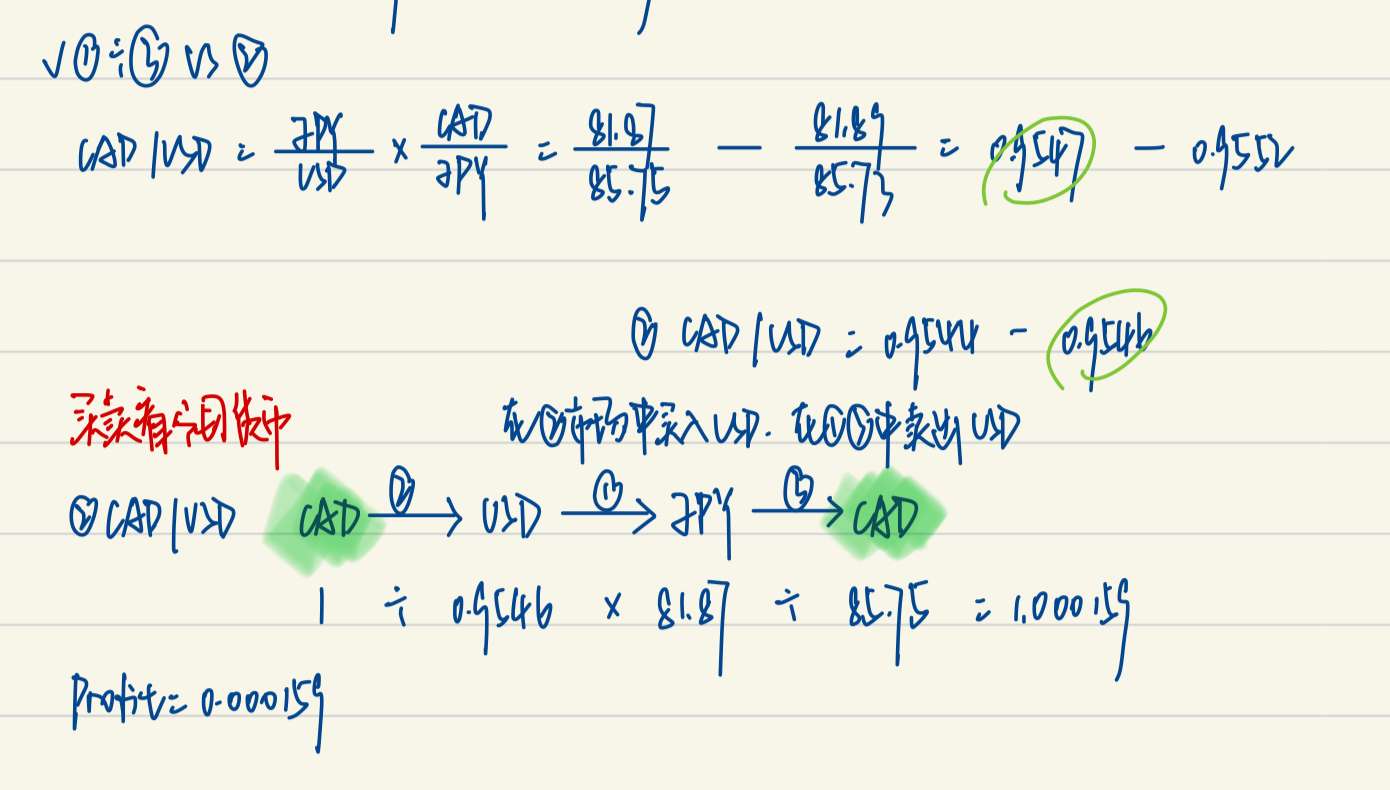 √ ① ÷ ③ vs ②
CAD/USD = JPY/USD × CAD/JPY = 81.87/85.75 — 81.89/85.73 = 0.9547 - 0.9552
② CAD/USD = 0.9544 - 0.9546
买卖看分母货币
在②市场中买入USD. 在①③中卖出USD
② CAD/USD CAD ②→ USD ①→ JPY ③→ CAD
1 ÷ 0.9546 × 81.87 ÷ 85.75 = 1.000159
Profit = 0.000159